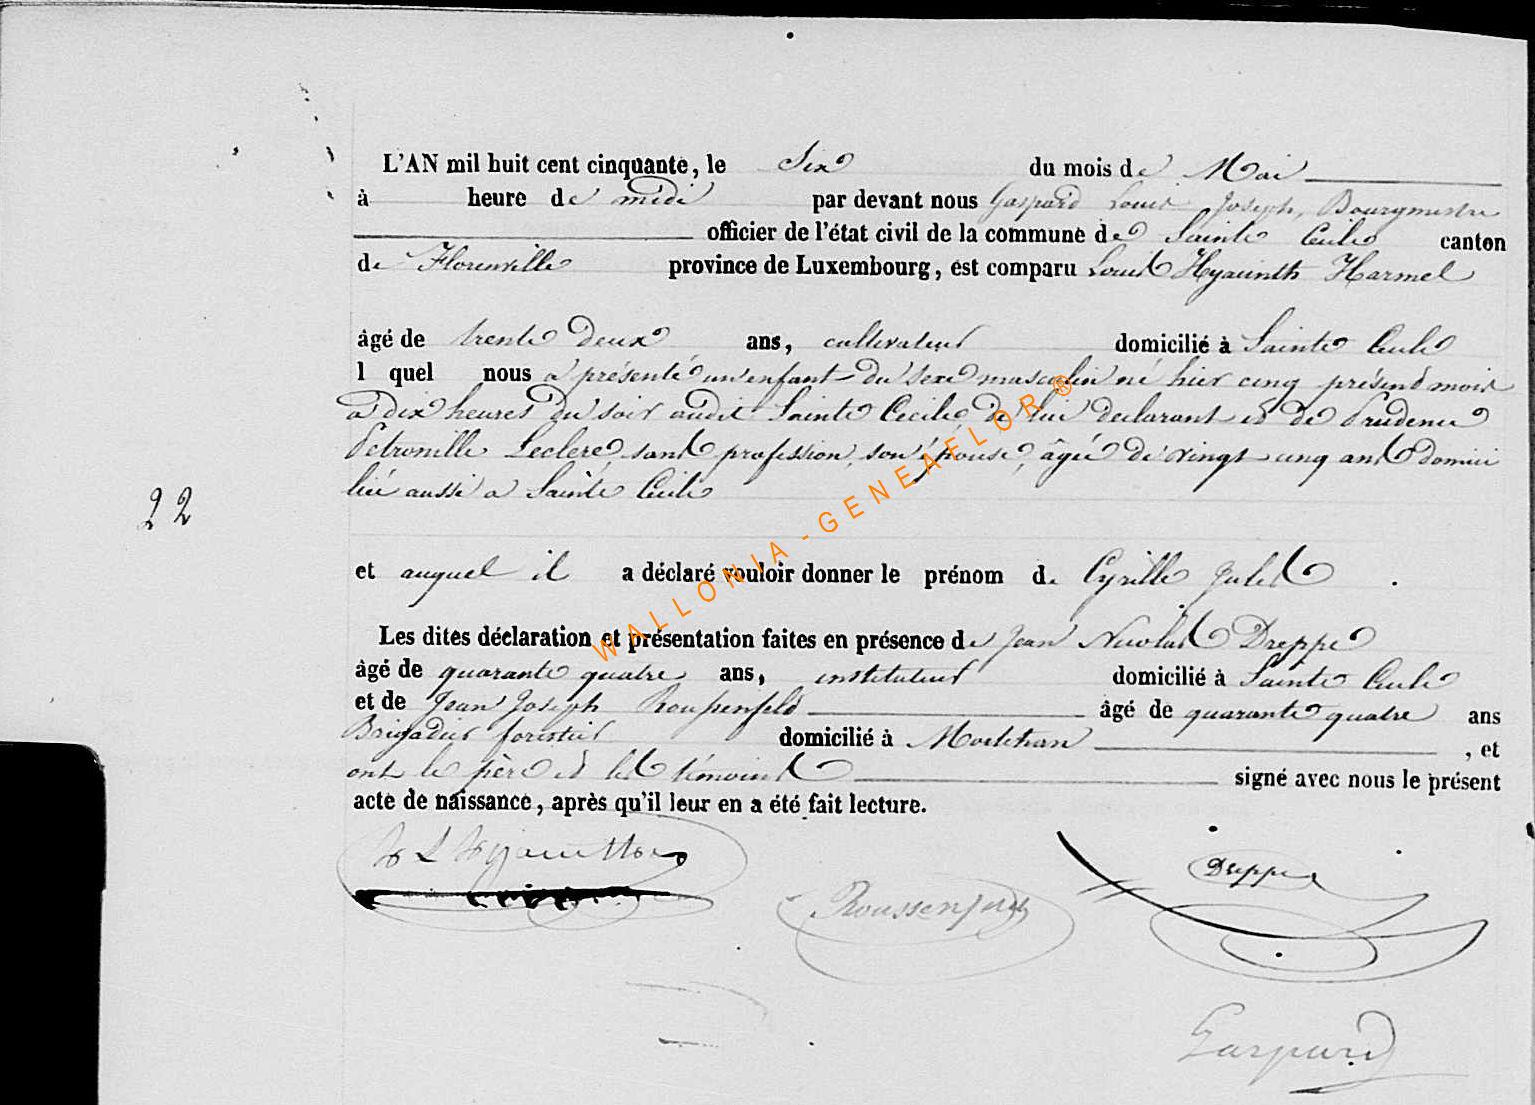 L'AN mil huit cent cinquante, le Six du mois de Mai
à heure de midi par devant nous Gaspard Louis Joseph, Bourgmestre
officier de l'état civil de la commune de Sainte Cecile canton
de Florenville province de Luxembourg, est comparu Louis Hyacinth Harmel
âgé de trente deux ans, cultivateur domicilié à Sainte Cecile
l quel nous a présenté un enfant du sexe masculin né hier cinq présend mois
a dix heures du soir audit Sainte Cecile de lui declarant et de Prudence
Petronille Leclere sans profession, son épouse, âgée de vingt cinq ans domici
liée aussi a Sainte Cecile
22
et auquel il a déclaré vouloir donner le prénom de Cyrille Jules
Les dites déclaration et présentation faites en présence de Jean Nicolas Dreppe
âgé de quarante quatre ans, instituteur domicilié à Sainte Cecile
et de Jean Joseph Roupenfeld âgé de quarante quatre ans
Brigadier forestier domicilié à , et
ont le père et les témoins signé avec nous le présent
acte de naissance, après qu'il leur en a été fait lecture.
Dreppe
Gaspard
WALLONIA - GENEAFLOR ®